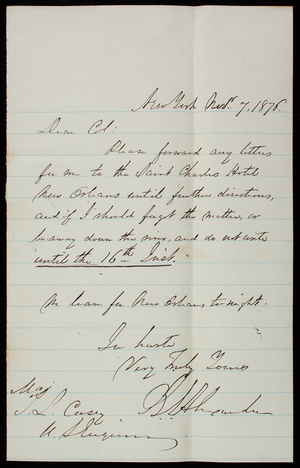 New York Novr. 7, 1878.
Dear Col:
Please forward any letters
for me to the Saint Charles Hotel
New Orleans until further directions,
and if I should forget the matter, or
be away down the river, and do not write
until the 16th Inst.
We leave for New Orleans to-night.
In haste
Very Truly Yours
B S Alexander
Maj
T. L. Casey
U. S. Engineers